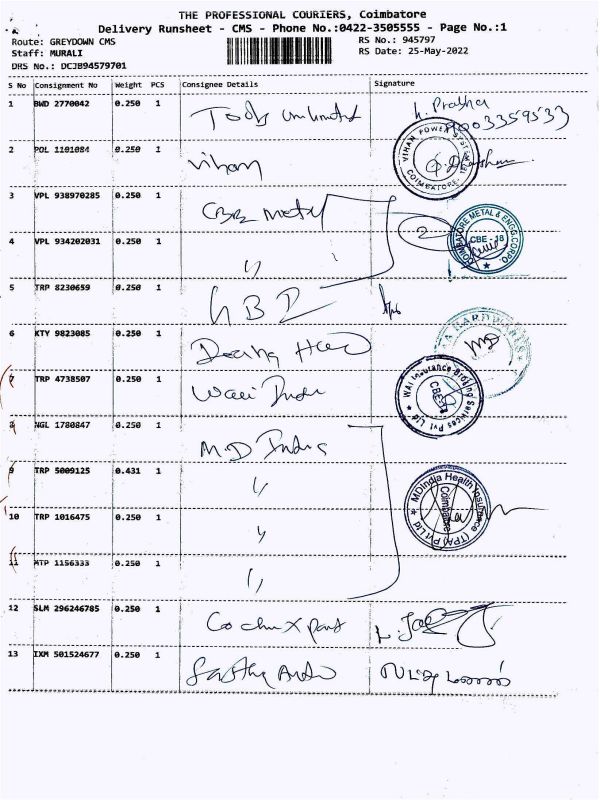 THE PROFESSIONAL COURIERS, Coimbatore
Delivery Runsheet - CMS - Phone No.:0422-3505555 - Page No.:1
Route: GREYDOWN CMS
RS No.: 945797
Staff: MURALI
RS Date: 25-May-2022
DRS No.: DCJB94579701
S No Consignment No Weight PCS Consignee Details Signature
1 BWD 2770042 0.250 1 Tools unlimited
9003359533
2 POL 1101084 0.250 1 Vihan
VIHAN POWER SYSTEMS COIMBATORE
3 VPL 938970285 0.250 1 CBE Metal
2
4 VPL 934202031 0.250 1 "
COIMBATORE METAL & ENGG.CORPO. CBE - 18
5 TRP 8230659 0.250 1
6 KTY 9823085 0.250 1
7 TRP 4738507 0.250 1
WAI Insurance Broking Services Pvt Ltd CBE
8 NGL 1780847 0.250 1 MD India
9 TRP 5009125 0.431 1 "
MDIndia Health Insurance (TPA) Pvt Ltd Coimbatore
10 TRP 1016475 0.250 1 "
11 MTP 1156333 0.250 1 "
12 SLM 296246785 0.250 1
13 IXM 501524677 0.250 1